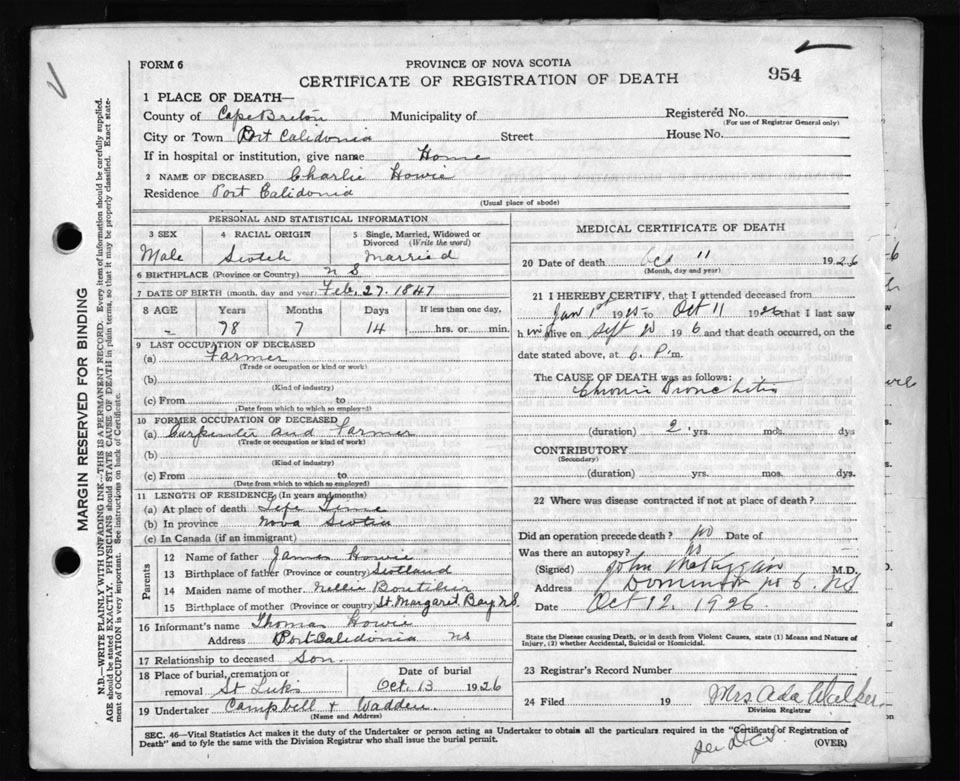 FORM 6
PROVINCE OF NOVA SCOTIA
CERTIFICATE OF REGISTRATION OF DEATH
954
1 PLACE OF DEATH—
County of Cape Breton Municipality of Registered No.
(For use of Registrar General only)
City or Town Port Calidonia Street House No.
If in hospital or institution, give name Home
2 NAME OF DECEASED Charlie Howie
Residence Port Calidonia
(Usual place of abode)
PERSONAL AND STATISTICAL INFORMATION
3 SEX 4 RACIAL ORIGIN 5 Single, Married, Widowed or Divorced (Write the word)
Male Scotch Married
6 BIRTHPLACE (Province or Country) N S
7 DATE OF BIRTH (month, day and year) Feb. 27. 1847
8 AGE Years Months Days If less than one day
78 7 14 hrs. or min.
9 LAST OCCUPATION OF DECEASED
(a) Farmer
(Trade or occupation or kind or work)
(b)
(Kind of industry)
(c) From to
(Date from which to which so employed)
10 FORMER OCCUPATION OF DECEASED
(a) Carpenter and Farmer
(Trade or occupation or kind of work)
(b)
(Kind of industry)
(c) From to
(Date from which to which so employed)
11 LENGTH OF RESIDENCE (In years and months)
(a) At place of death Life Time
(b) In province Nova Scotia
(c) In Canada (if an immigrant)
Parents
12 Name of father James Howie
13 Birthplace of father (Province or country) Scotland
14 Maiden name of mother Nellie Boutilier
15 Birthplace of mother (Province or country) St. Margaret Bay N.S.
16 Informant's name Thomas Howie
Address Port Calidonia NS
17 Relationship to deceased Son.
18 Place of burial, cremation or removal St Luks
Date of burial
Oct. 13 1926
19 Undertaker Campbell + Wadden
(Name and Address)
MEDICAL CERTIFICATE OF DEATH
20 Date of death Oct 11 1926
(Month, day and year)
21 I HEREBY CERTIFY, that I attended deceased from
Jan 1st 1925 to Oct 11 1926 that I last saw
h im alive on Sept 20 19 6 and that death occurred, on the
date stated above, at 6. P. m.
The CAUSE OF DEATH was as follows:
Chronic Bronchitis
(duration) 2 yrs. mos. dys
CONTRIBUTORY
(Secondary)
(duration) yrs. mos. dys.
22 Where was disease contracted if not at place of death?
Did an operation precede death? no Date of
Was there an autopsy? no
(Signed) John M.D.
Address Dominion No 6. NS
Date Oct 12. 1926.
State the Disease causing Death, or in death from Violent Causes, state (1) Means and Nature of
Injury, (2) whether Accidental, Suicidal or Homicidal.
23 Registrar's Record Number
24 Filed 19 Mrs Ada Walker
Division Registrar
SEC. 46—Vital Statistics Act makes it the duty of the Undertaker or person acting as Undertaker to obtain all the particulars required in the "Certificate of Registration of
Death" and to fyle the same with the Division Registrar who shall issue the burial permit.
(OVER)
per D C S.
MARGIN RESERVED FOR BINDING
N.B.—WRITE PLAINLY WITH UNFADING INK—THIS IS A PERMANENT RECORD. Every item of information should be carefully supplied.
AGE should be stated EXACTLY. PHYSICIANS should STATE CAUSE OF DEATH in plain terms, so that it may be properly classified. Exact state-
ment of OCCUPATION is very important. See instructions on back of Certificate.